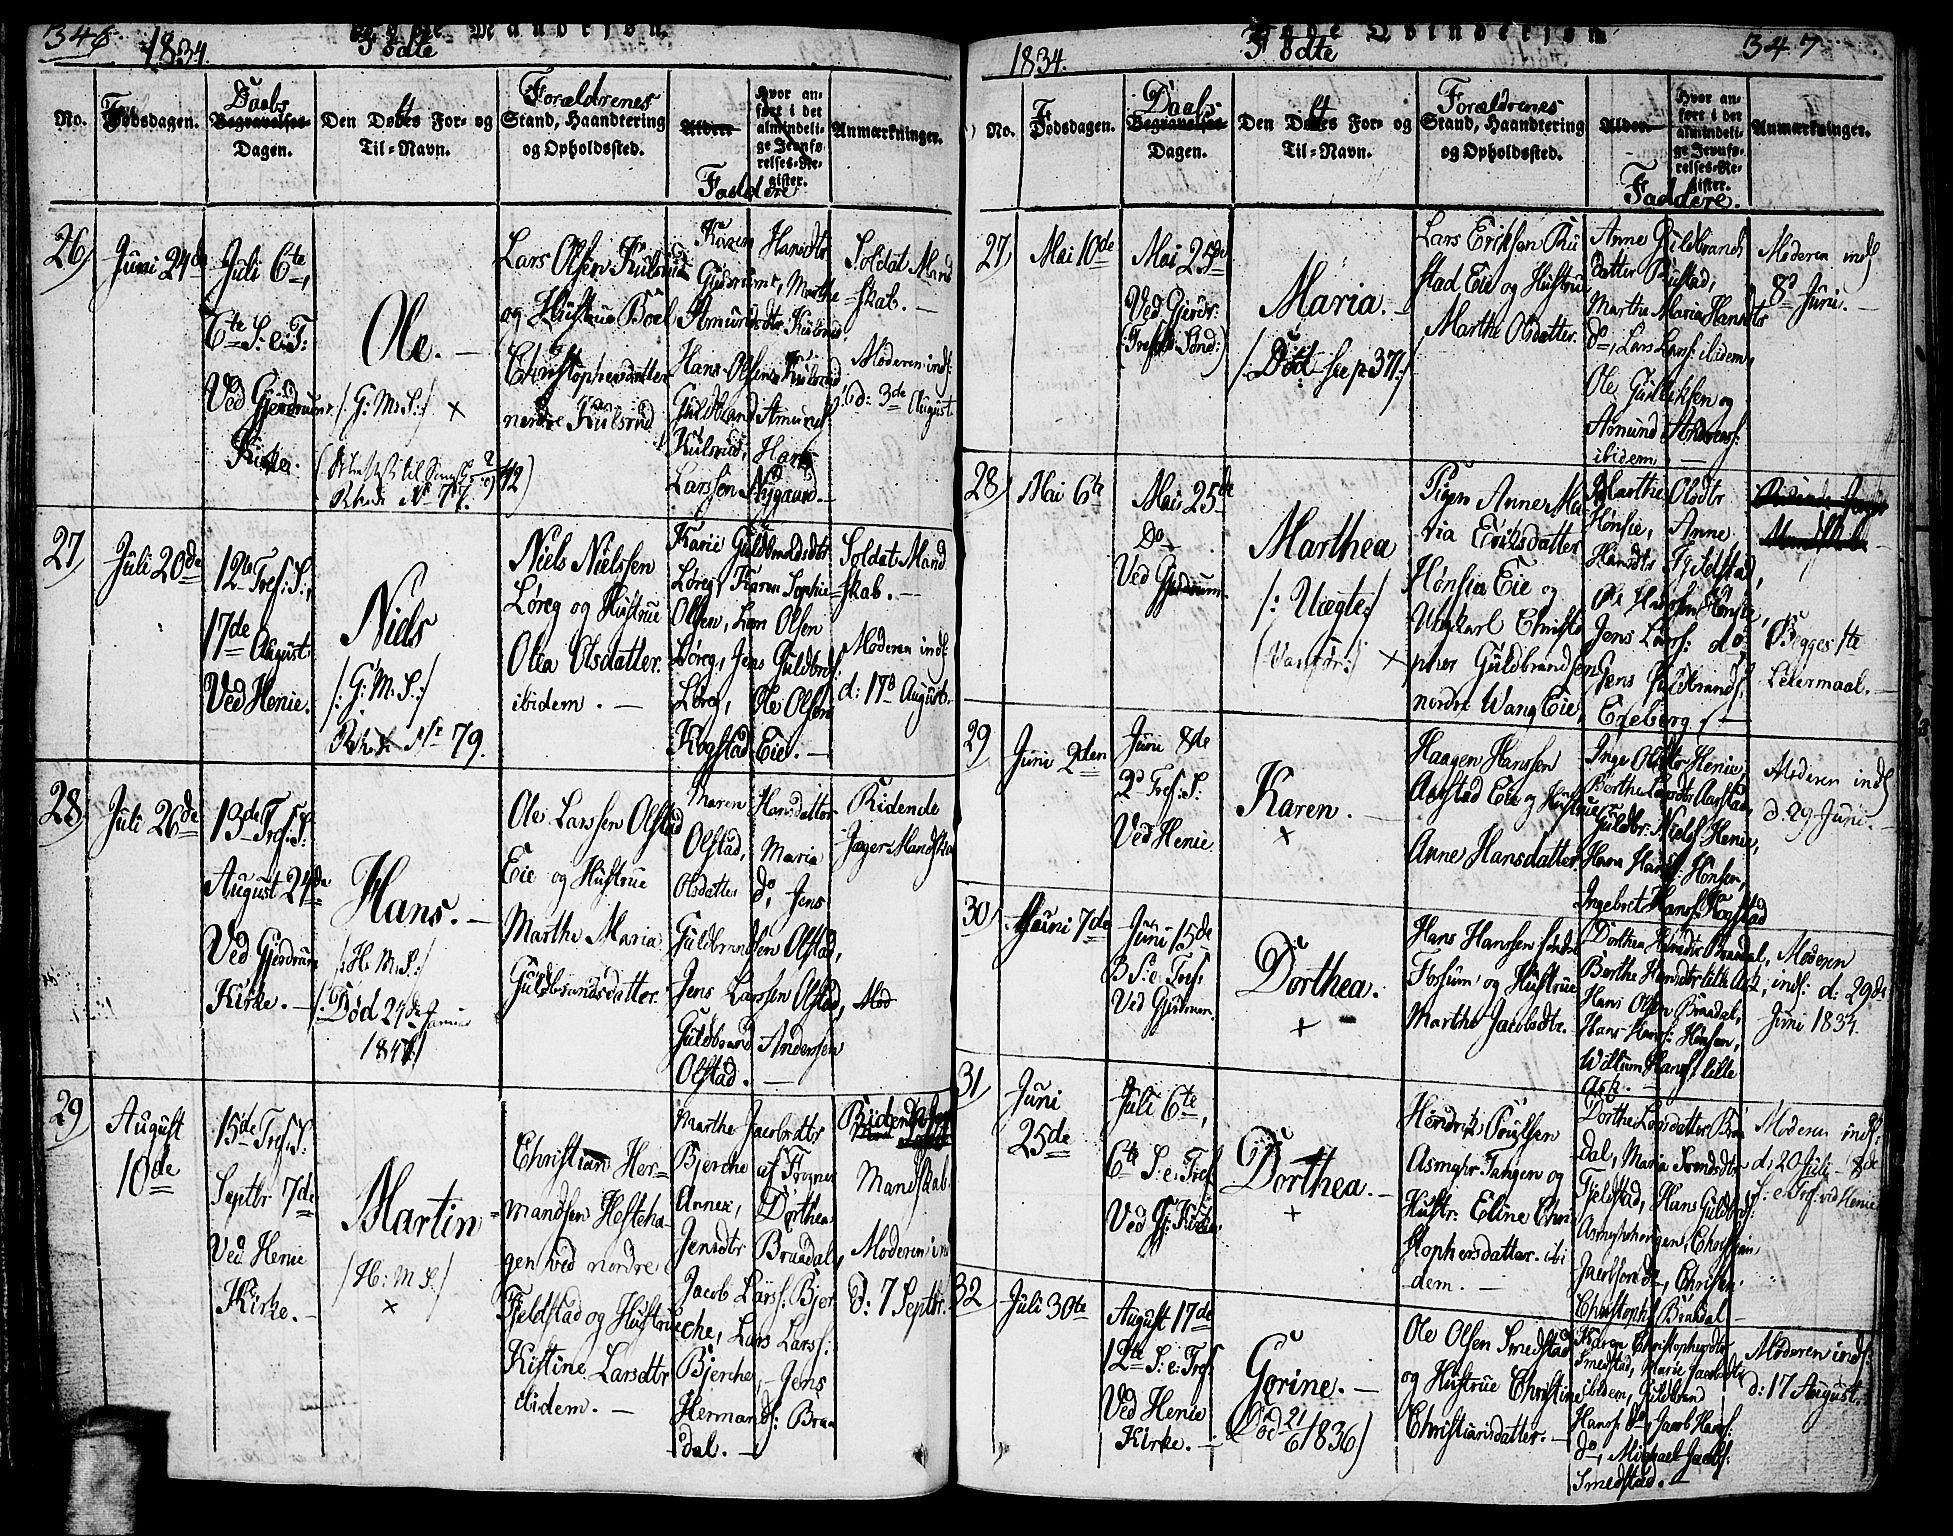 346
1834.
Fødte
No.
Fødsdagen.
Daabs
Begravelses-
Dagen.
Den Dødes For- og
Til-Navn.
Forældrenes
Stand, Haandtering
og Opholdssted.
Alder
Hvor an-
ført i det
almindeli-
ge Jevnfø-
relses-Re-
gister.
Faddere
Anmærkninger.
26)
Juni 24de
Juli 6te,
6te S. e. T:
Ved Gjerdrums
Kirke.
Ole. —
/: G: M: S:/ ×
No 77.
Lars Olsen Kulsrud
og Hustrue Boel
Christophersdatter
nordre Kulsrud
Karen Hansdtr
Gjerdrum, Marthe
Amundsdtr Kulsrud,
Hans Olsen Kulsrud
Guldbrand Amunds:
Kulsrud, Hans
Larssen Nygaard. —
Soldat Mand
skab. —
Moderen inds:
d: 3de August
27)
Juli 20de
12te Tref: S:,
17de August
Ved Henie.
Niels
/: G: M: S:/
No 79.
Niels Nielssen
Løreg og Hustrue
Olea Olsdatter
ibidem. —
Karie Guldbrandsdtr
Løreg, Karen Sophie
Olsen, Lars Olsen
Løreg, Jens Guldbrds:
Løreg, Ole Olsen
Kogstad Eie. —
Soldat Mand
skab. —
Moderen inds:
d: 17d August. —
28)
Juli 26de
13de Tref: S:
August 24de
Ved Gjerdrum
Kirke. —
Hans. —
/: H: M: S:/
/: Død 27de Januar
Ole Larssen Olstad
Eie og Hustrue
Marthe Maria
Guldbrandsdatter.
Maren Hansdatter
Olstad, Maria
Olsdatter do, Jens
Guldbrandsen Olstad,
Jens Larssen Olstad,
Guldbrand Andersen
Olstad. —
Ridende
Jæger-Mandska
Mod
29)
August
10de
15de Tref: S:
Septbr 7de
Ved Henie
Kirke. —
Martin
/: H: M: S:/
×
Christian Her-
mandsen Hesteha-
gen ved nordre
Fjeldstad og Hustrue
Kistine Larsdtr
ibidem. —
Marthe Jacobsdtr
Bjerche af Frogner
Annex, Dorthea
Jensdtr Braadal,
Jacob Larss: Bjer
che, Lars Larss:
Bjerche, Jens
Hermands: Braa
dal. —
Mandskab
Moderen ind
d: 7 Septbr.
1834.
Fødte
347
No.
Fødsdagen.
Daabs
Begravelses-
Dagen.
Den Dødes For- og
Til-Navn.
Forældrenes
Stand, Haandtering
og Opholdssted.
Alder.
Hvor an-
ført i det
almindeli-
ge Jevnfø-
relses-Re-
gister.
Faddere.
Anmærkninger.
27)
Mai 10de
Mai 25de
Ved Gjerdr:
Maria. —
/: Død see p 371:/
Lars Eriksen Ru
stad Eie og Hustrue
Marthe Olsdatter.
Anne Guldbrands
datter Rustad,
Marthe Maria Hansdtr
do, Lars Larss: ibidem
Ole Gulliksen og
Amund Anderss:
ibidem —
Moderen inds
8d Juni. —
28)
Mai 6te
Mai 25de
Do
Ved Gjerdrum.
Marthea
/: Uægte/
×
Pigen Anne Ma-
ria Eriksdatter
Hønsie Eie og
Ungkarl Christo
pher Guldbrandsen
nordre Wang Eie,
Marthe Olsdtr
Hønsie, Anne
Hansdtr Fjeldstad,
Ole Hanssen Hønsie,
Jens Larss: do
Jens Guldbrands:
Begges 1te
Leiermaal. —
29)
Juni 2den
Juni 8de
2d Tref: S:
Ved Henie.
Karen. —
×
Haagen Hanssen
Aagstad Eie og Hustrue
Anne Hansdatter.
Inge Olsdtr Henie,
Guldbr: Niels: Henie,
Ingebret Hanss: Kogstad
Moderen inds
d 29 Juni. —
30)
Juni 7de
Juni 15de
3 S: e: Tref
Ved Gjerdrum.
Dorthea. —
×
Hans Hanssen søndre
Fossum og Hustrue
Marthe Jacobsdtr.
Dorthea Hansdtr Braadal,
Berthe Hansdtr lille Ask,
Hans Olsen Braadal,
Hans Hanss: Hønsen,
Willum Hanss: lille
Ask. —
Moderen
inds: d: 29de
Juni 1834.
31)
Juni
25de
Juli 6te,
6te S: e: Tref
Ved Gj: Kirke.
Dorthea. —
×
Hendrik Poulsen
Asmyhr-Tangen og
Hustr: Eline Chri-
stophersdatter ibi
dem. —
Dorthe Larsdatter Braa
dal, Maria Svendsdtr
Fjeldstad, Hans Guldbrds:
Asmyhrhougen, Christian
Jacobsen do, Christen
Christoph: Braadal —
Moderen inds:
d: 20 Juli — 8de
S: e Tref: ved Henie
32)
Juli 30te
August 17de
12te S: e: Tref
Ved Henie
Kirke. —
Gorine. —
Død 21/6 1836)
Ole Olsen Smedstad
og Hustrue Christine
Christiansdatter. —
Karen Christophersdtr
Smedstad, Marie Jacobsdtr
ibidem, Guldbrand
Hanss: do, Jacob Hanss:
do, Michael Jacobs:
Smedstad. —
Moderen inds:
d: 17 August. —